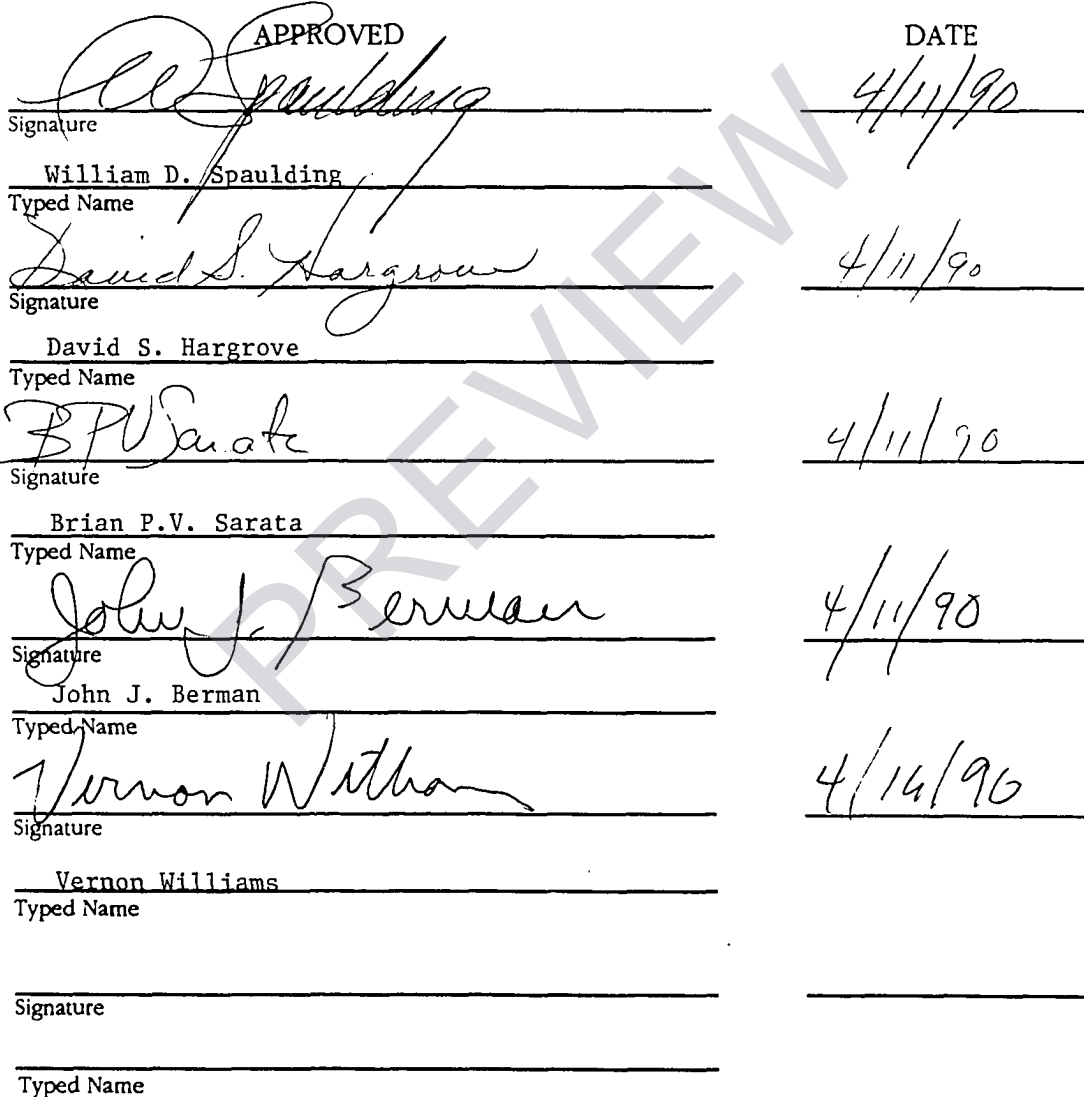 APPROVED DATE
WD Spaulding 4/11/90
Signature
William D. Spaulding
Typed Name
David S. Hargrove 4/11/90
Signature
David S. Hargrove
Typed Name
BPV Sarata 4/11/90
Signature
Brian P.V. Sarata
Typed Name
John J. Berman 4/11/90
Signature
John J. Berman
Typed Name
Vernon 4/16/90
Signature
Vernon Williams
Typed Name
Signature
Typed Name
PREVIEW